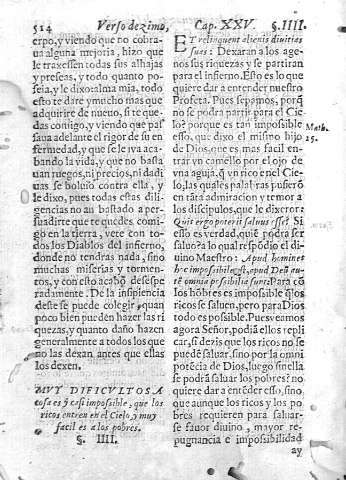 514 Verso dezimo, Cap. XXV. §. IIII.
erpo, y viendo que no cobra-
ua alguna mejoria, hizo que
le traxessen todas sus alhajas
y presas, y todo quanto po-
seìa, y le dixo: alma mia, todo
esto te daré y mucho mas que
adquirire de nueuo, si te que-
das contigo, y viendo que pas
saua adelante el rigor de su en
fermedad, y que se le iva aca-
bando la vida, y que no basta
uan ruegos, ni precios, ni dadi
uas se boluìo contra ella, y
le dixo, pues todas estas dili-
gencias no au bastado a per-
suadirte que te quedes comi-
go en la tierra, vete con to-
dos los Diablos del infierno,
donde no tendras nada, sino
muchas miserias y tormen-
tos, y con esto acabò dese spe-
radamente. De la insipiencia
deste se puede colegir, quan
poco bien pueden hazer las ri
quezas, y quanto daño hazen
generalmente a todos los que
no las dexan antes que ellas
los dexen.
MUY DIFICULTOSA
cosa es y casi impossible, que los
ricos entren en el Cielo, y muy
facil es a los pobres.
§. IIII.
ET relinquent alienis diuitias
suas: Dexaran a los age-
nos sus riquezas y se partiran
para el infierno. Esto es lo que
quiere dar a entender nuestro
Profeta. Pues sepamos, porq̃
no se podra partir para el Cie-
lo? porque es tan impossible
esso, que dixo el mismo hijo
de Dios, que es mas facil ent-
trar vn camello por el ojo de
vna aguja, q̃ vn rico en el Cie-
lo, las quales palabras pusierõ
en tãta admiracion y temor a
los discipulos, que le dixeron:
Quis ergo poterit saluus esse? Si
esso es verdad, quiẽ podra ser
saluo? a lo qual respõdio el di
uino Maestro: Apud homines
hoc impossibile est, apud Deũ au-
tẽ omnia possibilia sunt: Para cõ
los hõbres es impossible q̃ los
ricos se saluen, pero para Dios
todo es possible. Pues veamos
agora Señor, podiã ellos repli
car, si dezis que los ricos no se
puedẽ saluar, sino por la omni
potẽcia de Dios, luego sin ella
se podrã saluar los pobres? no
quiere dar a entẽder esso, sino
que aunque los ricos y los po
bres requieren para saluar-
se fauor diuino, mayor re-
pugnancia e impossibilidad
ay
Math.
25.